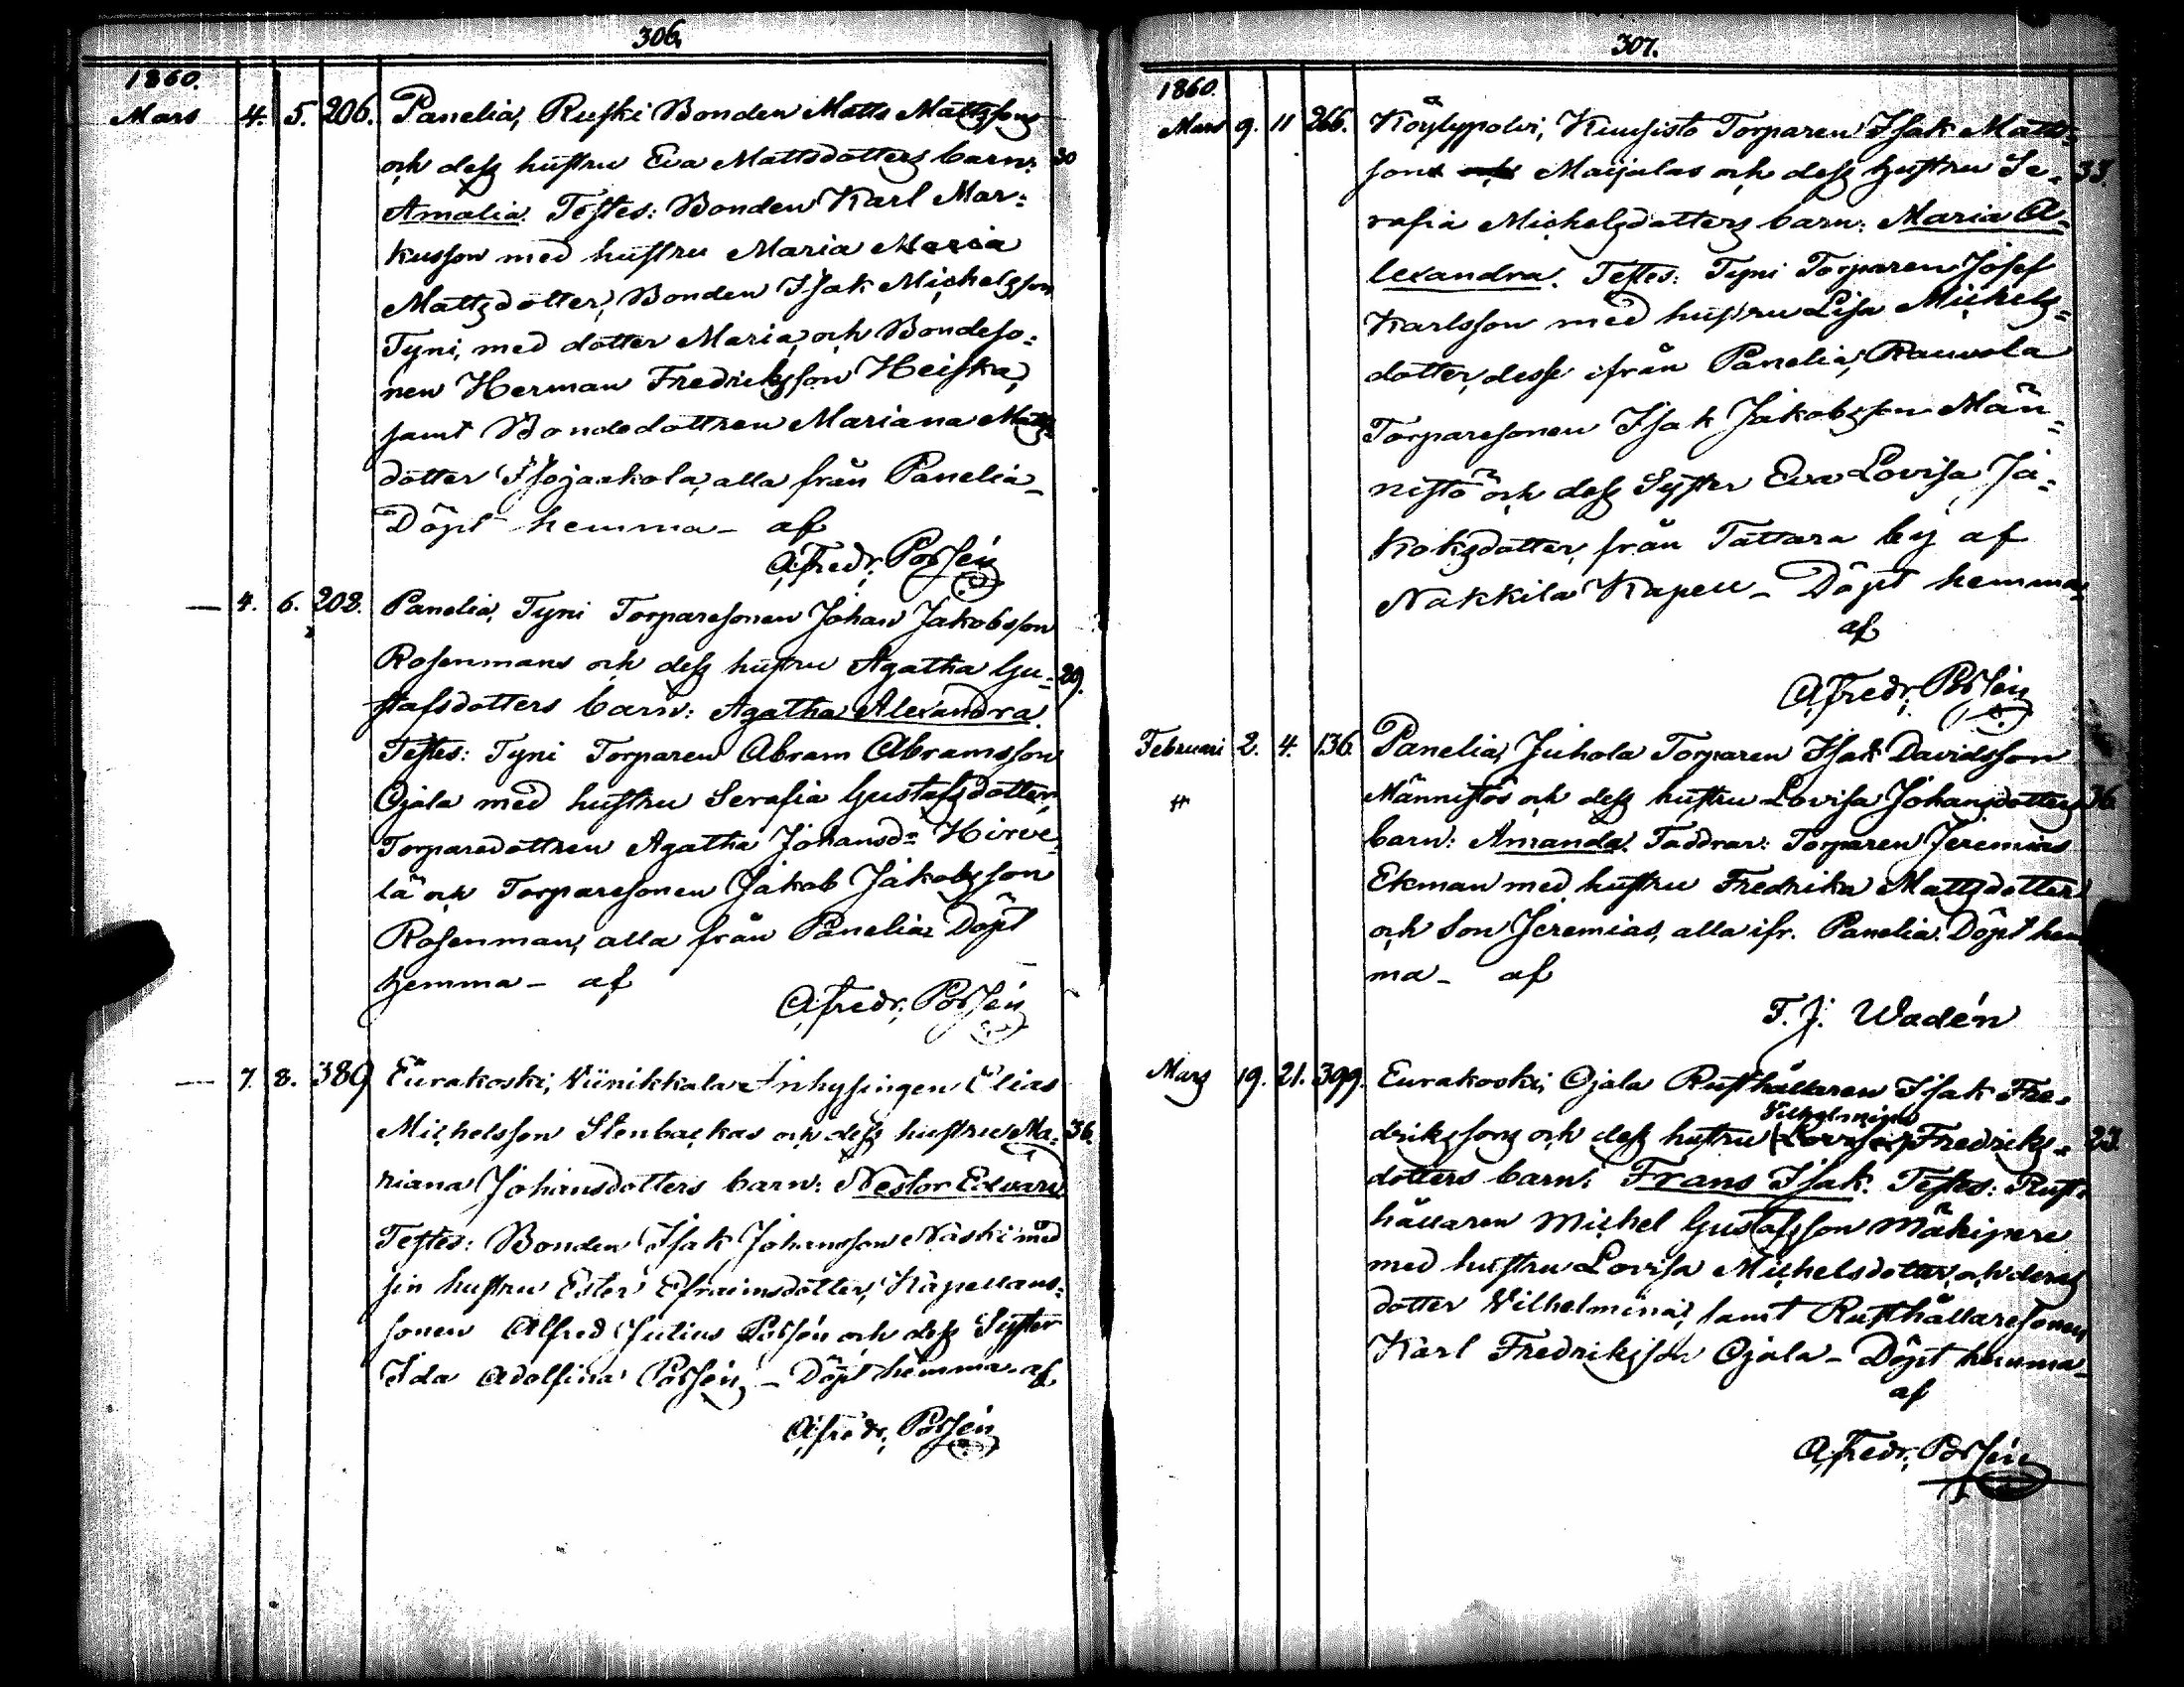 306.
1860.
Mars 4. 5. 206. Panelia, Ruski Bonden Matts Mattssons
och dess hustru Eva Mattsdotters barn: 30
Amalia. Testes: Bonden Karl Mar=
kusson med hustru Maria Maria
Mattsdotter, Bonden Isak Michelsson
Tyni, med dotter Maria, och Bondeso=
nen Herman Fredriksson Heiska,
samt Bondedottren Mariana Matts=
dotter Isojaakola, alla från Panelia_
Döpt hemma_ af
A. Fredr. Porsén
— 4. 6. 202. Panelia, Tyni Torparesonen Johan Jakobsson
Rosenmans och dess hustru Agatha Gu= 29.
stafsdotters barn: Agatha Alexandra.
Testes: Tyni Torparen Abram Abramsson
Ojala med hustru Serafia Gustafsdotter,
Torparedottren Agatha Johansd= Hirve=
lä och Torparesonen Jakob Jakobsson
Rosenman, alla från Panelia. Döpt
hemma_ af
A. Fredr. Porsén
— 7. 8. 389 Eurakoski, Viinikkala Inhysingen Elias
Michelsson Stenbackas och dess hustru Ma= 36.
riana Johansdotters barn: Nestor Edvard
Testes: Bonden Isak Johansson Näski med
sin hustru Ester Efraimsdotter, Kapellans=
sonen Alfred Julius Porsén och dess Syster
Ida Adolfina Porsén_ Döpt hemma af
A. Fredr. Porsén
307.
1860.
Mars 9. 11 266. Köylypolvi, Kuusisto Torparen Isak Matts=
sons Maijalas och dess hustru Se= 33.
rafia Michelsdotters barn: Maria A=
lexandra. Testes: Tyni Torparen Josef
Karlsson med hustru Lisa Michels=
dotter, desse ifrån Panelia, Rauvola
Torparesonen Isak Jakobsson Män=
nistö och dess Syster Eva Lovisa Ja=
kobsdotter, från Tattara by af
Nakkila Kapell_ Döpt hemma_
af
A. Fredr. Porsén
Februari 2. 4. 136. Panelia, Juhola Torparen Isak Davidsson
Männistös och dess hustru Lovisa Johansdotters 36
barn: Amanda. Faddrar: Torparen Jeremias
Ekman med hustru Fredrika Mattsdotter
och Son Jeremias, alla ifr. Panelia. Döpt hem
ma_ af
F. J. Wadén
Mars 19. 21. 399. Eurakoski, Ojala Rusthållaren Isak Fre=
Vilhelmina
drikssons och dess hustru (Lovisa) Fredriks= 23.
dotters barn: Frans Isak. Testes: Rust=
hållaren Michel Gustafsson Mäkipere
med hustru Lovisa Michelsdotter, och deras
dotter Vilhelmina, samt Rusthållaresonen
Karl Fredriksson Ojala_ Döpt hemma_
af
A. Fredr. Porsén